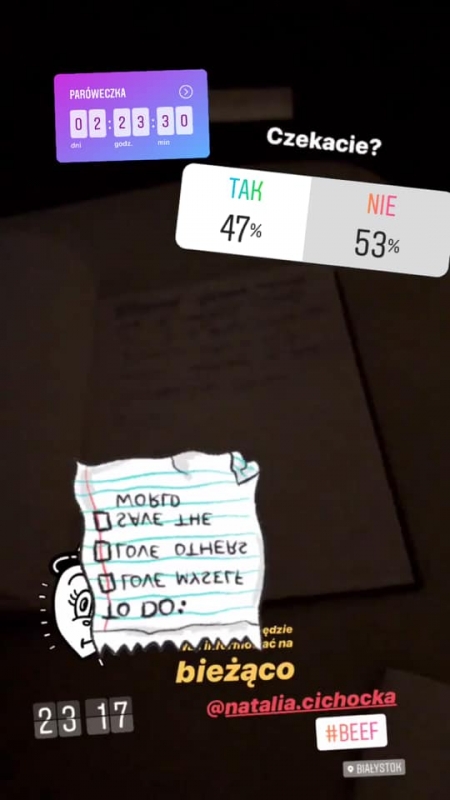 PARÓWECZKA
02:23:30
dni godz. min
Czekacie?
TAK NIE
47% 53%
TO DO:
LOVE MYSELF
LOVE OTHERS
SAVE THE
WORLD
na
bieżąco
@natalia.cichocka
23 17
#BEEF
BIAŁYSTOK